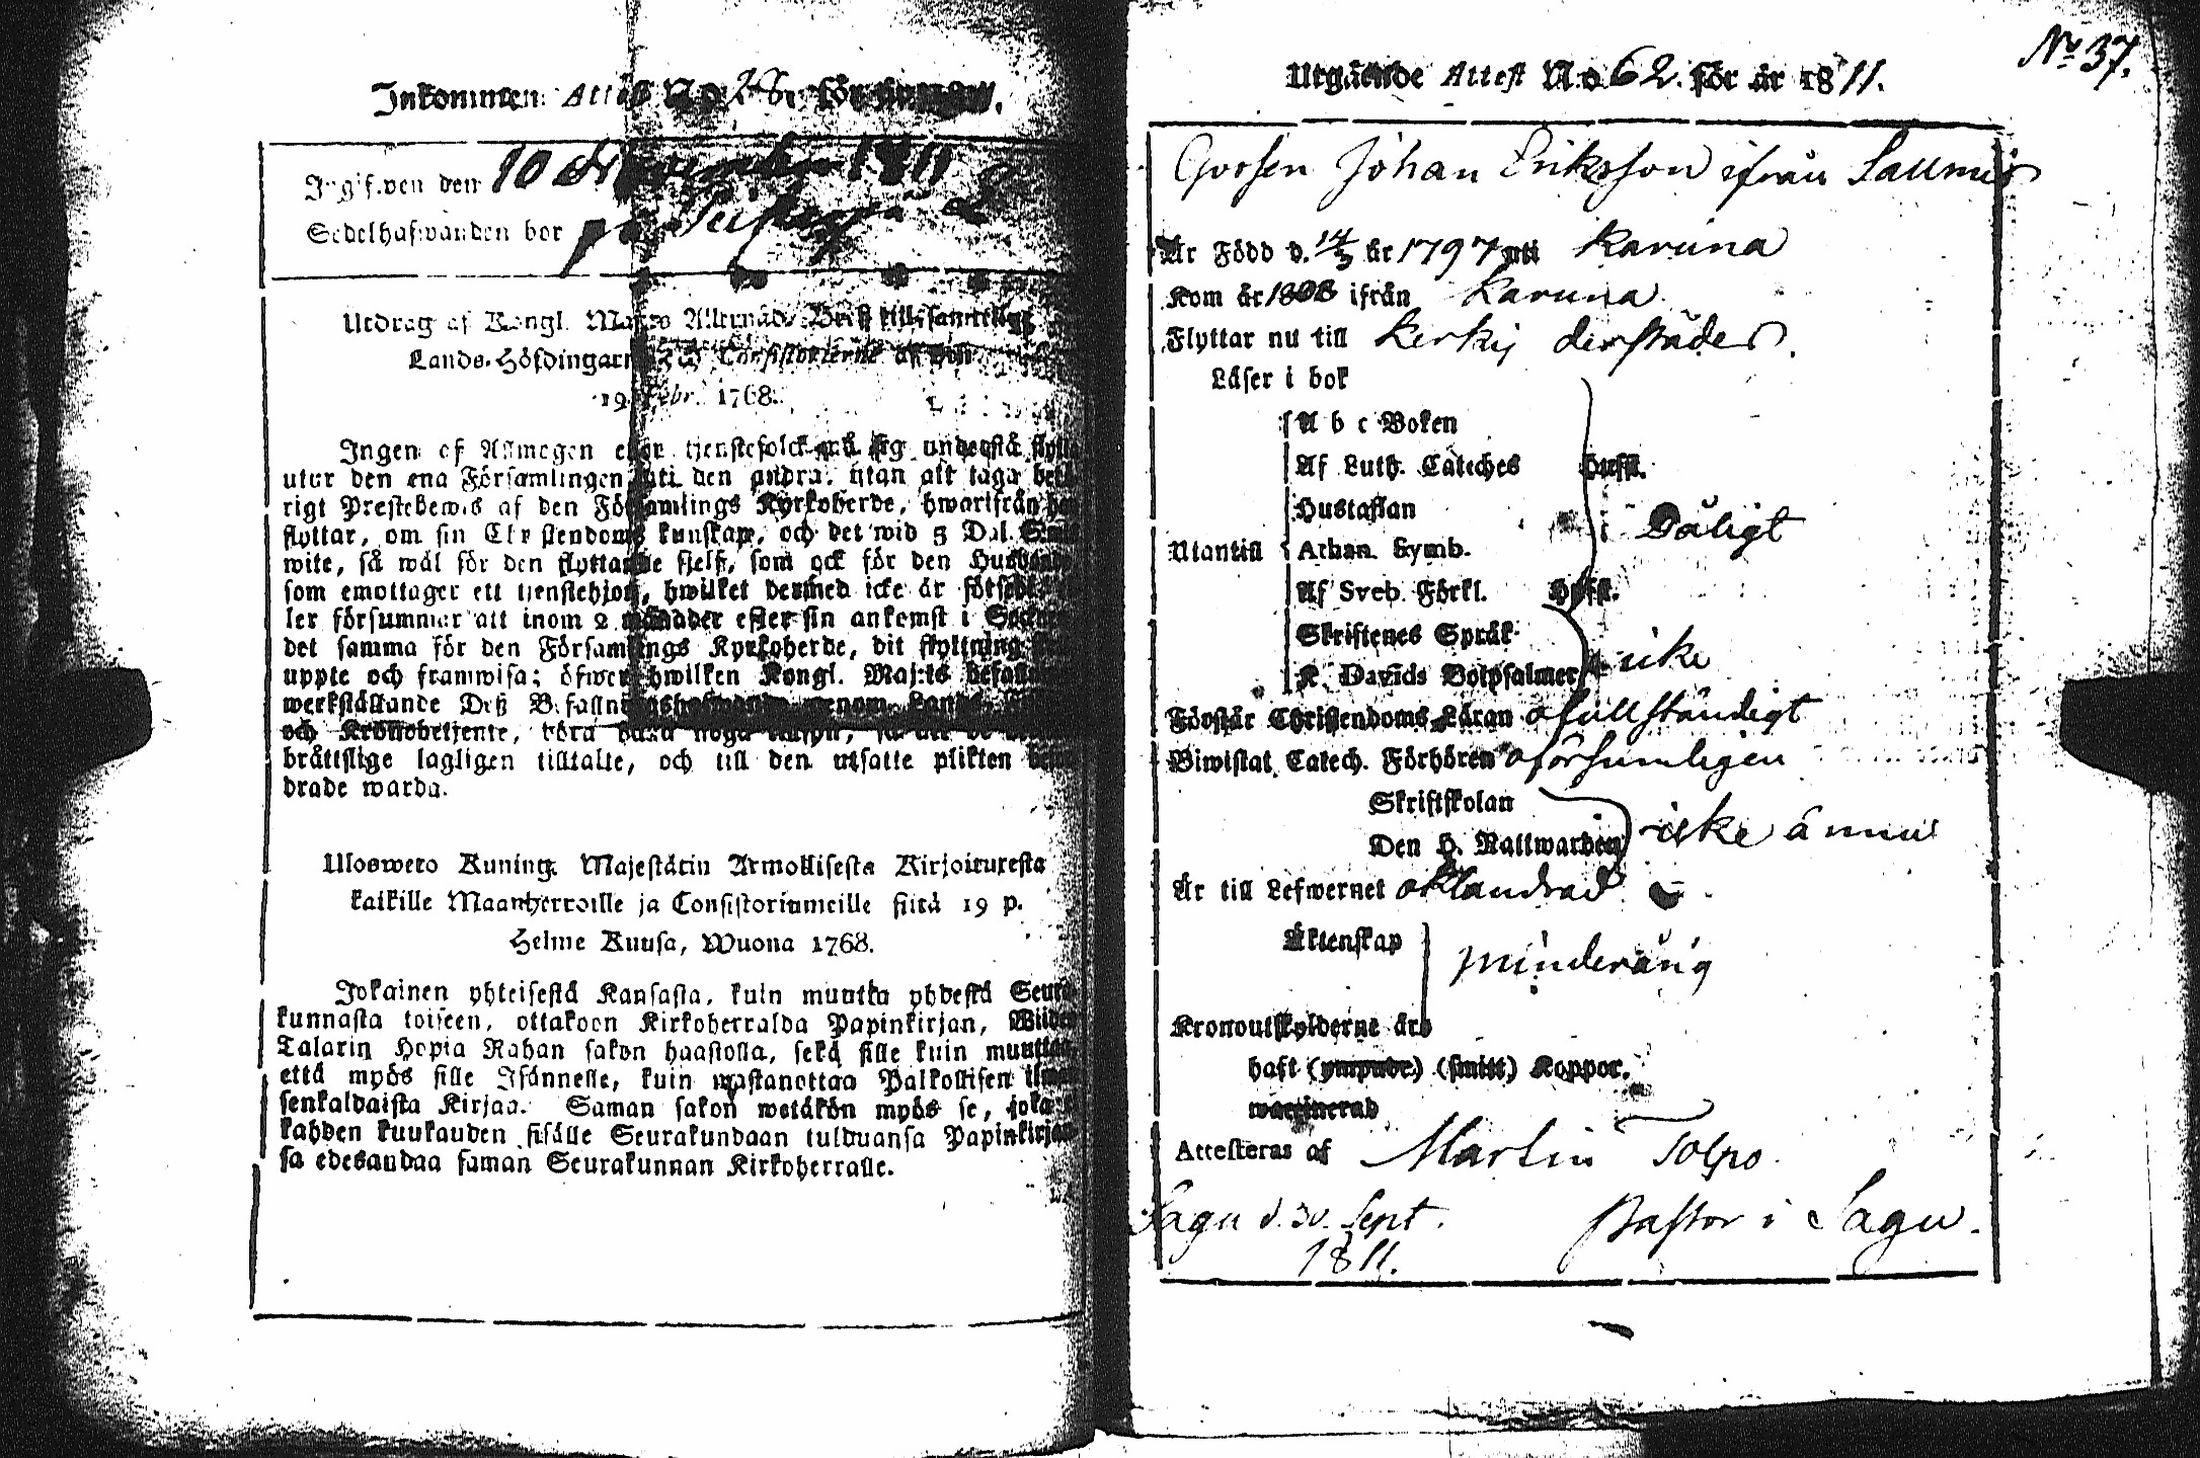 Inkommen Attest No 28. för
Ingifven den 10 November 1811
Sedelhafwanden bor på
Utdrag af Kongl. Maj:ts Allernåd. Bref till samtelige
Lands-Höfdingar och Consistorierne af den
19 Febr. 1768.
Ingen af Allmogen eller tjenstefolck må sig understå flytta
utur den ena Församlingen uti den andra, utan att taga behö-
rigt Prestebewis af den Församlings Kyrkoherde, hwarifrån han
flyttar, om sin Christendoms kunskap, och det wid 5 Dal. S:mts
wite, så wäl för den flyttande sjelf, som ock för den Husbonde,
som emottager ett tjenstehjon, hwilket dermed icke är försedt, el-
ler försummar att inom 2 månader efter sin ankomst i Socknen
det samma för den Församlings Kyrkoherde, dit flyttning sker
uppte och framwisa; öfwer hwilken Kongl. Maj:ts befallning
werkställande Deß Befallningshafwande genom Lands
och Kronobetjente, böra hafwa noga tillsyn, så att de
bråttslige lagligen tilltalte, och till den utsatte plikten
drade warda.
Uloswето Kuning. Majestätin Armollisesta Kirjoituresta
kaikille Maanherroille ja Consistoriumeille siitä 19 p.
Helme Kuusa, Wuona 1768.
Jokainen yhteisestä Kansasta, kuin muutta yhdestä Seura-
kunnasta toiseen, ottakoon Kirkoherralda Papinkirjan, Wiiden
Talarin Hopia Rahan sakon haastolla, sekä sille kuin muuttaa,
että myös sille Isännelle, kuin wastanottaa Palkollisen ilman
senkaldaista Kirjaa. Saman sakon wetäkön myös se, joka ei
kahden kuukauden sisälle Seurakundaan tulduansa Papinkirjaan-
sa edesandaa saman Seurakunnan Kirkoherralle.
No 37.
Utgående Attest No 62. för år 1811.
Gossen Johan Eriksson ifrån Saumis
Är Född d. 14/3 år 1797 uti Karuna
Kom år 1808 ifrån Karuna
Flyttar nu till Kerkij derstädes.
Läser i bok
A b c Boken
Af Luth. Cateches Hufst.
Hustaflan
Dåligt
Utantill Athan. Symb.
Af Sveb. Förkl. Hufst.
Skriftenes Språk
K. Davids Botpsalmer icke
Förstår Christendoms Läran ofullständigt
Biwistat Catech. Förhören oförsumligen
Skriftskolan
Den H. Nattwarden icke ännu
Är till Lefwernet oklandrad
Äktenskap minderårig
Kronoutskylderne äro
haft (ympade) (smitt) Koppor.
waccinerad
Attesteras af Martin Tolpo
Sagu d. 30. Sept. Pastor i Sagu.
1811.